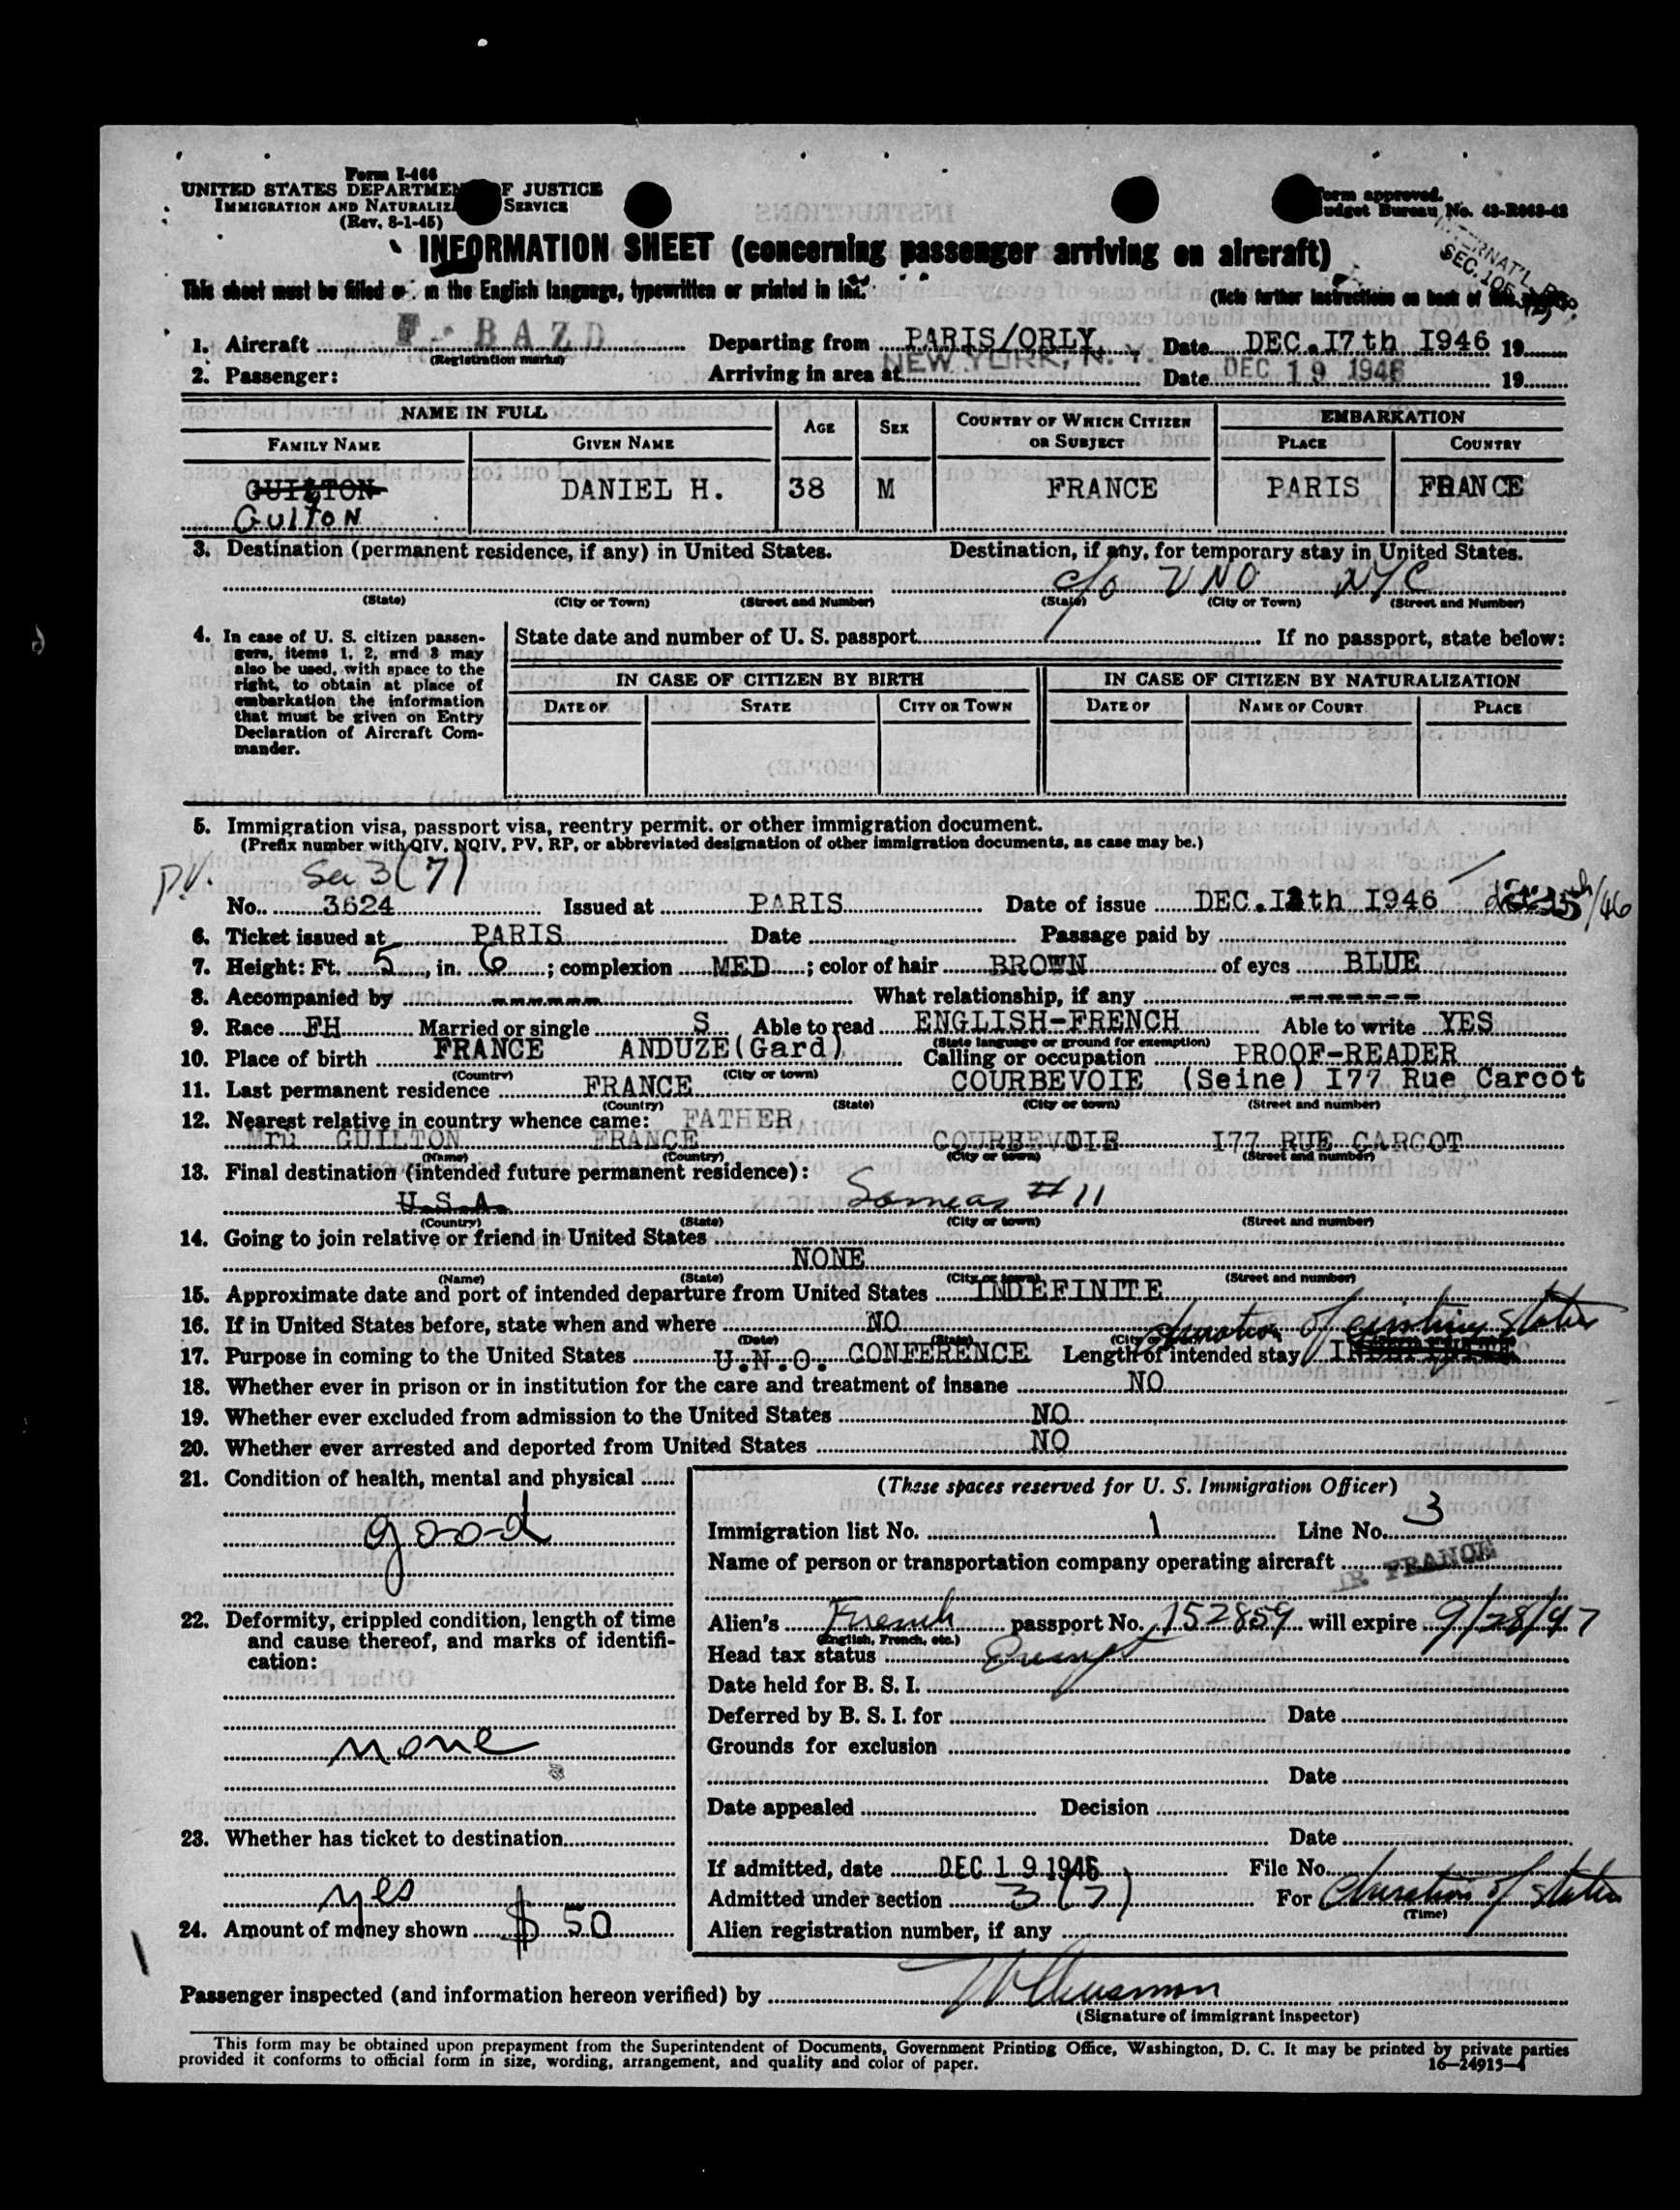 Form I-466
UNITED STATES DEPARTMEN F JUSTICE
IMMIGRATION AND NATURALIZ SERVICE
(Rev. 8-1-45)
Form approved.
Budget Bureau No. 43-R063-42
INFORMATION SHEET (concerning passenger arriving on aircraft)
This sheet must be filled in the English language, typewritten or printed in ink.
(Note further instructions on back of this sheet)
INTERNAT'L
SEC. 10
1. Aircraft F-BAZD Departing from PARIS/ORLY, Date DEC. I7th I946 19
(Registration marks)
2. Passenger: Arriving in area at NEW YORK, N. Y. Date DEC 19 1946 19
NAME IN FULL AGE SEX COUNTRY OF WHICH CITIZEN OR SUBJECT EMBARKATION
FAMILY NAME GIVEN NAME PLACE COUNTRY
GUILTON DANIEL H. 38 M FRANCE PARIS FRANCE
GUITON
3. Destination (permanent residence, if any) in United States. Destination, if any, for temporary stay in United States.
c/o UNO NYC
(State) (City or Town) (Street and Number) (State) (City or Town) (Street and Number)
4. In case of U. S. citizen passen-
gers, items 1, 2, and 3 may
also be used, with space to the
right, to obtain at place of
embarkation the information
that must be given on Entry
Declaration of Aircraft Com-
mander.
State date and number of U. S. passport If no passport, state below:
IN CASE OF CITIZEN BY BIRTH IN CASE OF CITIZEN BY NATURALIZATION
DATE OF STATE CITY OR TOWN DATE OF NAME OF COURT PLACE
5. Immigration visa, passport visa, reentry permit, or other immigration document.
(Prefix number with QIV, NQIV, PV, RP, or abbreviated designation of other immigration documents, as case may be.)
P.V. Sec 3(7)
No. 3624 Issued at PARIS Date of issue DEC. I2th I946
6. Ticket issued at PARIS Date Passage paid by
7. Height: Ft. 5, in. 6; complexion MED; color of hair BROWN of eyes BLUE
8. Accompanied by ------ What relationship, if any -------
9. Race FH Married or single S Able to read ENGLISH-FRENCH Able to write YES
(State language or ground for exemption)
10. Place of birth FRANCE ANDUZE (Gard) Calling or occupation PROOF-READER
(Country) (City or town)
11. Last permanent residence FRANCE COURBEVOIE (Seine) I77 Rue Carcot
(Country) (State) (City or town) (Street and number)
12. Nearest relative in country whence came: FATHER
GUILTON FRANCE COURBEVOIE I77 RUE CARCOT
(Name) (Country) (City or town) (Street and number)
13. Final destination (intended future permanent residence):
U.S.A. Same as # 11
(Country) (State) (City or town) (Street and number)
14. Going to join relative or friend in United States
NONE
(Name) (State) (City or town) (Street and number)
15. Approximate date and port of intended departure from United States INDEFINITE
16. If in United States before, state when and where NO
(Date) (State) (City
duration of existing status
17. Purpose in coming to the United States U.N.O. CONFERENCE Length of intended stay INDEFINITE
18. Whether ever in prison or in institution for the care and treatment of insane NO
19. Whether ever excluded from admission to the United States NO
20. Whether ever arrested and deported from United States NO
21. Condition of health, mental and physical
good
22. Deformity, crippled condition, length of time
and cause thereof, and marks of identifi-
cation:
none
23. Whether has ticket to destination
yes
24. Amount of money shown $ 50
(These spaces reserved for U. S. Immigration Officer)
Immigration list No. 1 Line No. 3
Name of person or transportation company operating aircraft AIR FRANCE
Alien's French passport No. 152859 will expire 9/28/47
(English, French, etc.)
Head tax status Exempt
Date held for B. S. I.
Deferred by B. S. I. for Date
Grounds for exclusion
Date
Date appealed Decision
Date
If admitted, date DEC 19 1946 File No.
Admitted under section 3(7) For duration of status
(Time)
Alien registration number, if any
Passenger inspected (and information hereon verified) by
(Signature of immigrant inspector)
This form may be obtained upon prepayment from the Superintendent of Documents, Government Printing Office, Washington, D. C. It may be printed by private parties
provided it conforms to official form in size, wording, arrangement, and quality and color of paper. 16—24915-4